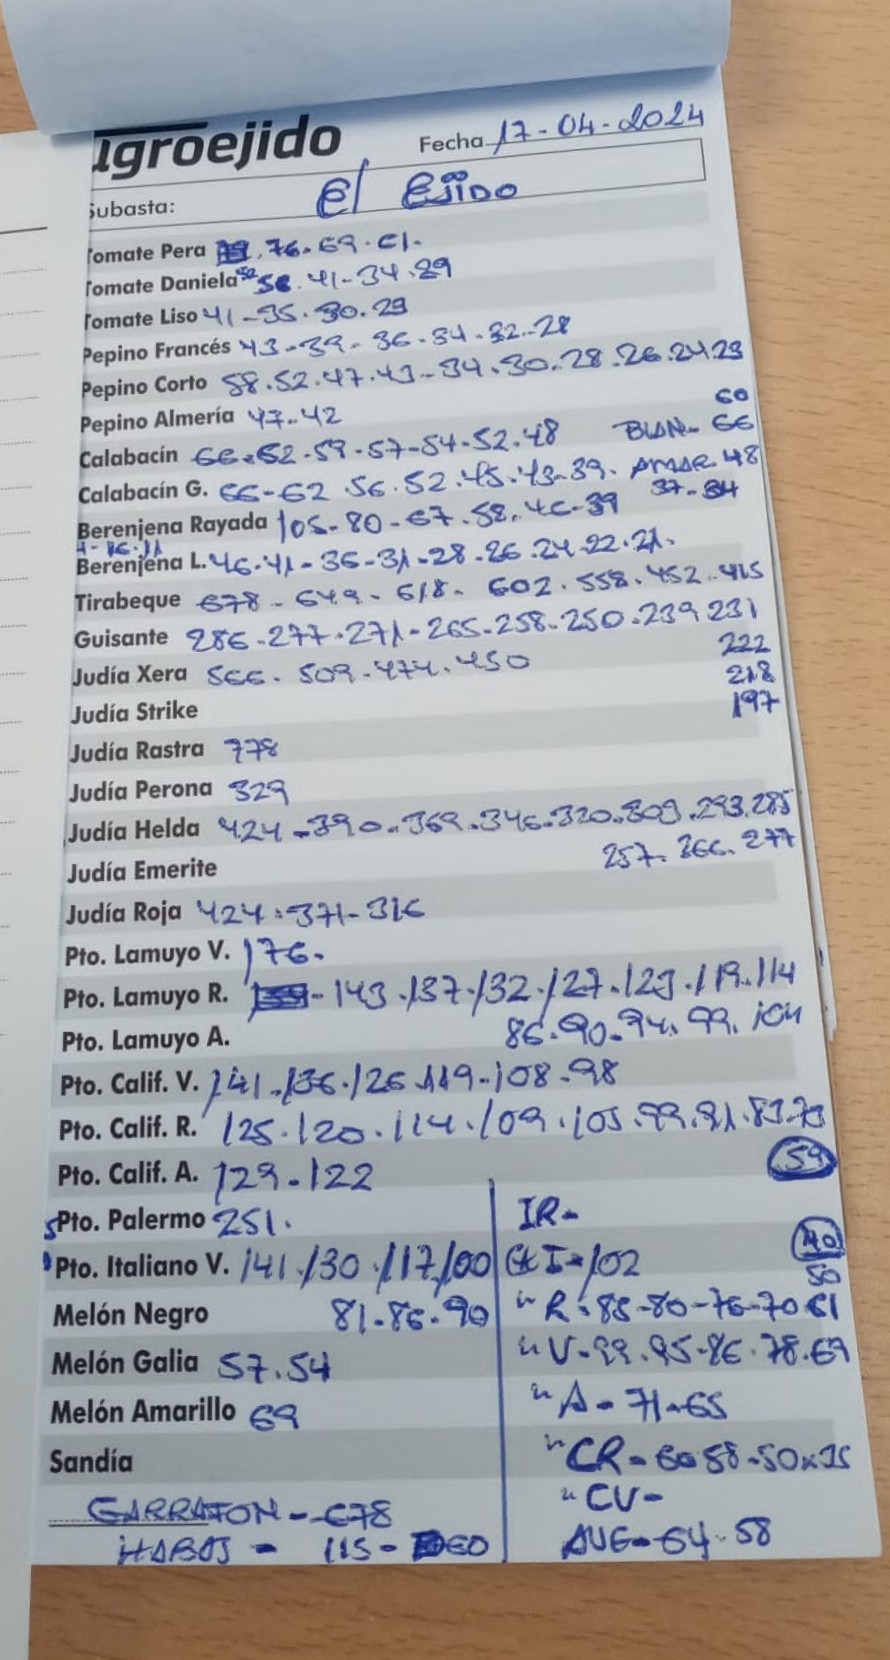 agroejido
Fecha 17-04-2024
Subasta: El Ejido
Tomate Pera 76-69-61-
Tomate Daniela 52 41-34-29
Tomate Liso 41-35-30-23
Pepino Francés 43-39-36-34-32-28
Pepino Corto 58-52-47-43-34-30-28-26-24-23
Pepino Almería 47-42
60
Calabacín 66-62-59-57-54-52-48 BLAN- 66
Calabacín G. 66-62 56-52-45-43-39- AMAR 48
37-34
Berenjena Rayada 105-80-67-58-46-39
Berenjena L. 46-41-36-31-28-26-24-22-21-
Tirabeque 678-649-618-602-558-452-415
Guisante 286-277-271-265-258-250-239 231
222
Judía Xera 566-509-474-450
218
Judía Strike
197
Judía Rastra 778
Judía Perona 329
Judía Helda 424-390-369-346-320-309-293-285
257-266-277
Judía Emerite
Judía Roja 424-371-316
Pto. Lamuyo V. 176-
Pto. Lamuyo R. 143-137-132-127-123-119-114
86-90-94-99-104
Pto. Lamuyo A.
Pto. Calif. V. 141-136-126-119-108-98
Pto. Calif. R. 125-120-114-109-105-99-91-83-73
59
Pto. Calif. A. 129-122
Pto. Palermo 251- IR-
40
Pto. Italiano V. 141-130-117-100 I-102
50
Melón Negro 81-86-90 " R-85-80-76-70 61
Melón Galia 57-54 " V-99-95-86-78-69
Melón Amarillo 69 " A-71-65
Sandía " CR-60 58-50x35
" CV-
GARRAFON--678
HABAS - 115-60 AVE-64-58